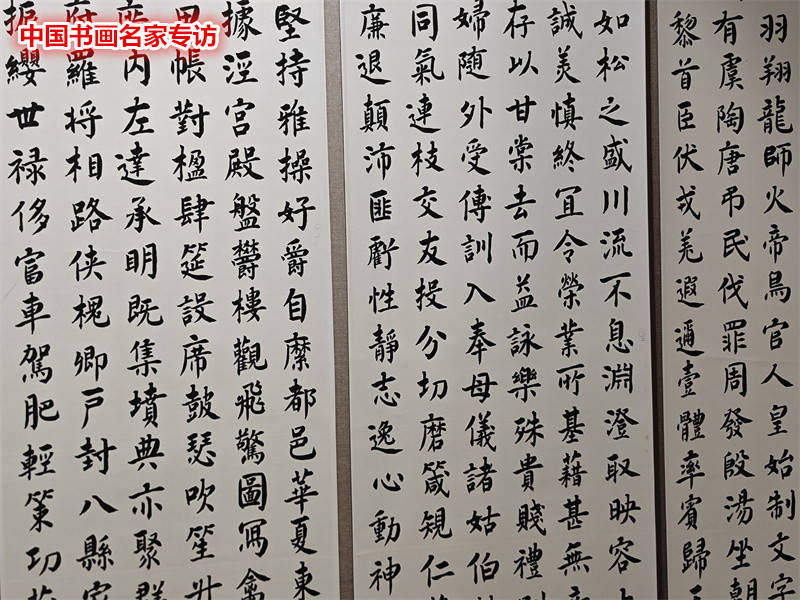 中国书画名家专访
羽翔龍師火帝鳥官人皇始制文字
有虞陶唐弔民伐罪周發殷湯坐朝
黎首臣伏戎羌遐邇壹體率賓歸
如松之盛川流不息淵澄取映容
誠美慎終宜令榮業所基藉甚無
存以甘棠去而益詠樂殊貴賤禮
婦隨外受傅訓入奉母儀諸姑伯
同氣連枝交友投分切磨箴規仁
廉退顛沛匪虧性靜志逸心動神
堅持雅操好爵自縻都邑華夏東
據涇宮殿盤鬱樓觀飛驚圖寫禽
帳對楹肆筵設席鼓瑟吹笙升
內左達承明既集墳典亦聚群
羅將相路俠槐卿戶封八縣家
振纓世祿侈富車駕肥輕策功